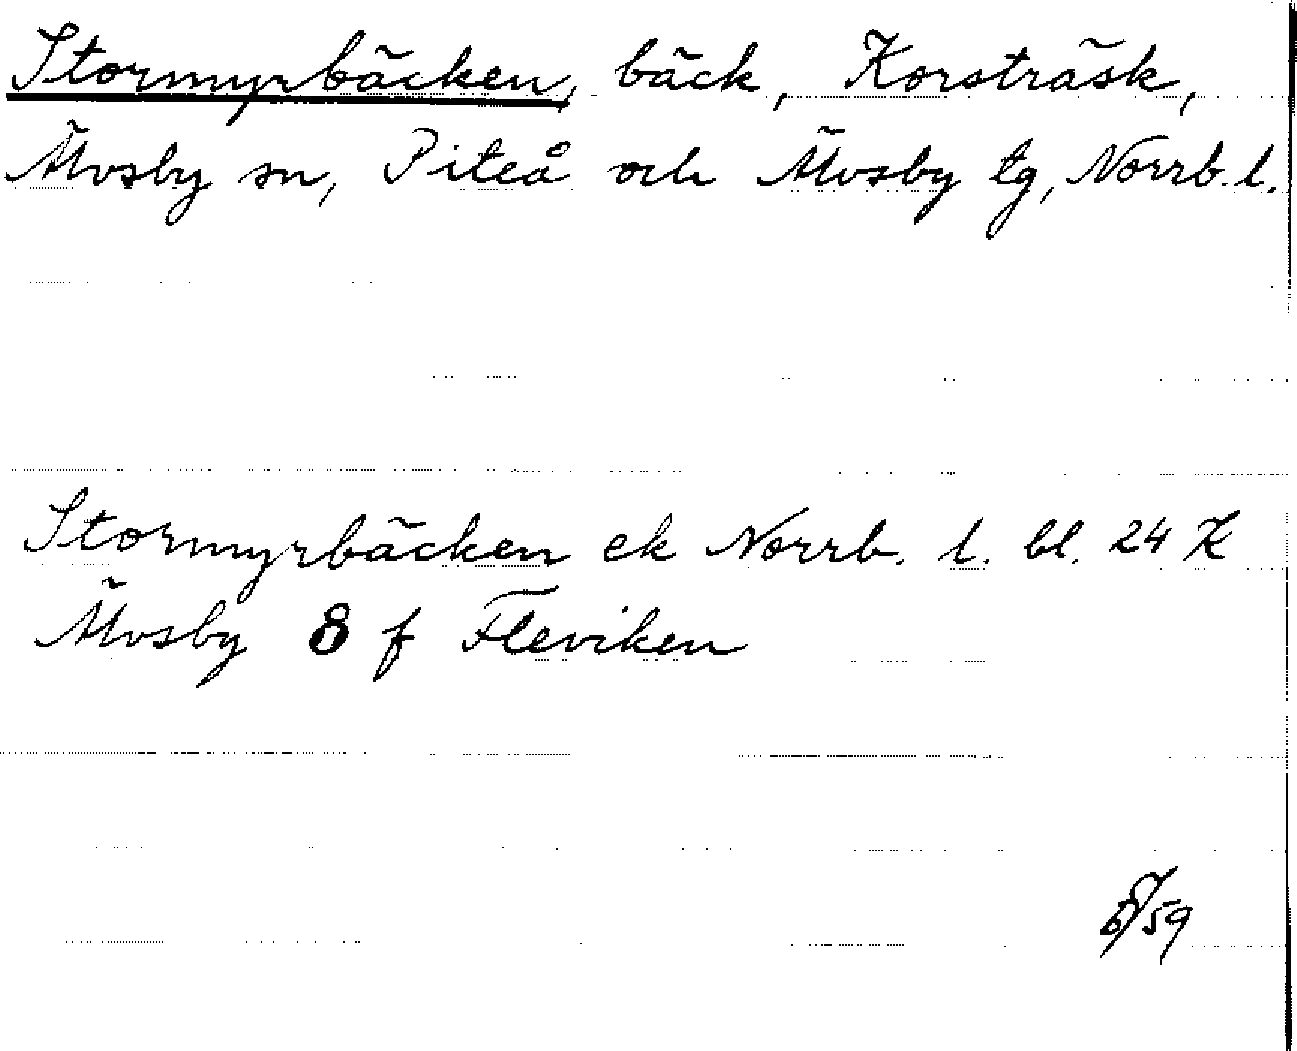 Stormyrbäcken, bäck, Korsträsk,
Älvsby sn, Piteå och Älvsby tg, Norrb. l.
Stormyrbäcken ek Norrb. l. bl. 24 K
Älvsby 8 f Fleviken
59